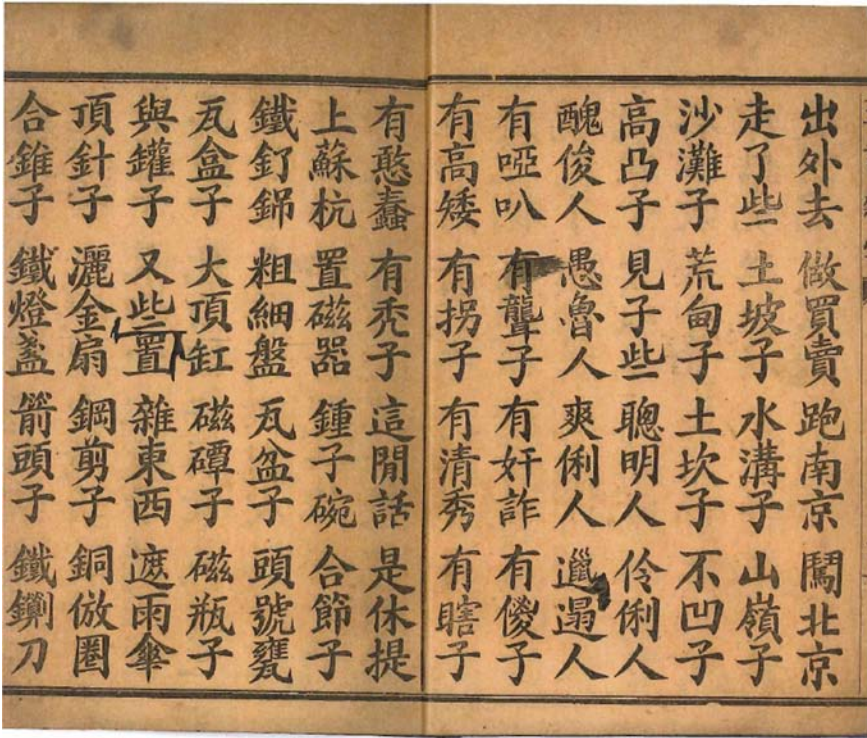 出外去 做買賣 跑南京 鬧北京
走了些 土坡子 水溝子 山嶺子
沙灘子 荒甸子 土坎子 不凹子
高凸子 見子些 聰明人 伶俐人
醜俊人 愚魯人 爽俐人 邋遢人
有啞叭 有聾子 有奸詐 有傻子
有高矮 有拐子 有清秀 有瞎子
有憨蠢 有禿子 這閒話 是休提
上蘇杭 置磁器 鍾子碗 合節子
鐵釘鎊 粗細盤 瓦盆子 頭號甕
瓦盒子 大頂缸 磁磹子 磁瓶子
與罐子 又些置 雜東西 遮雨傘
頂針子 灑金扇 鋼剪子 銅倣圈
合錐子 鐵燈盞 箭頭子 鐵鍘刀